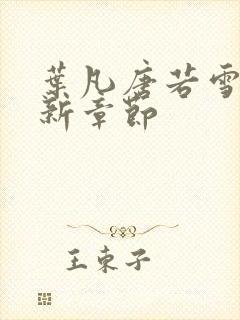 葉凡唐若雪
新章節
王東子